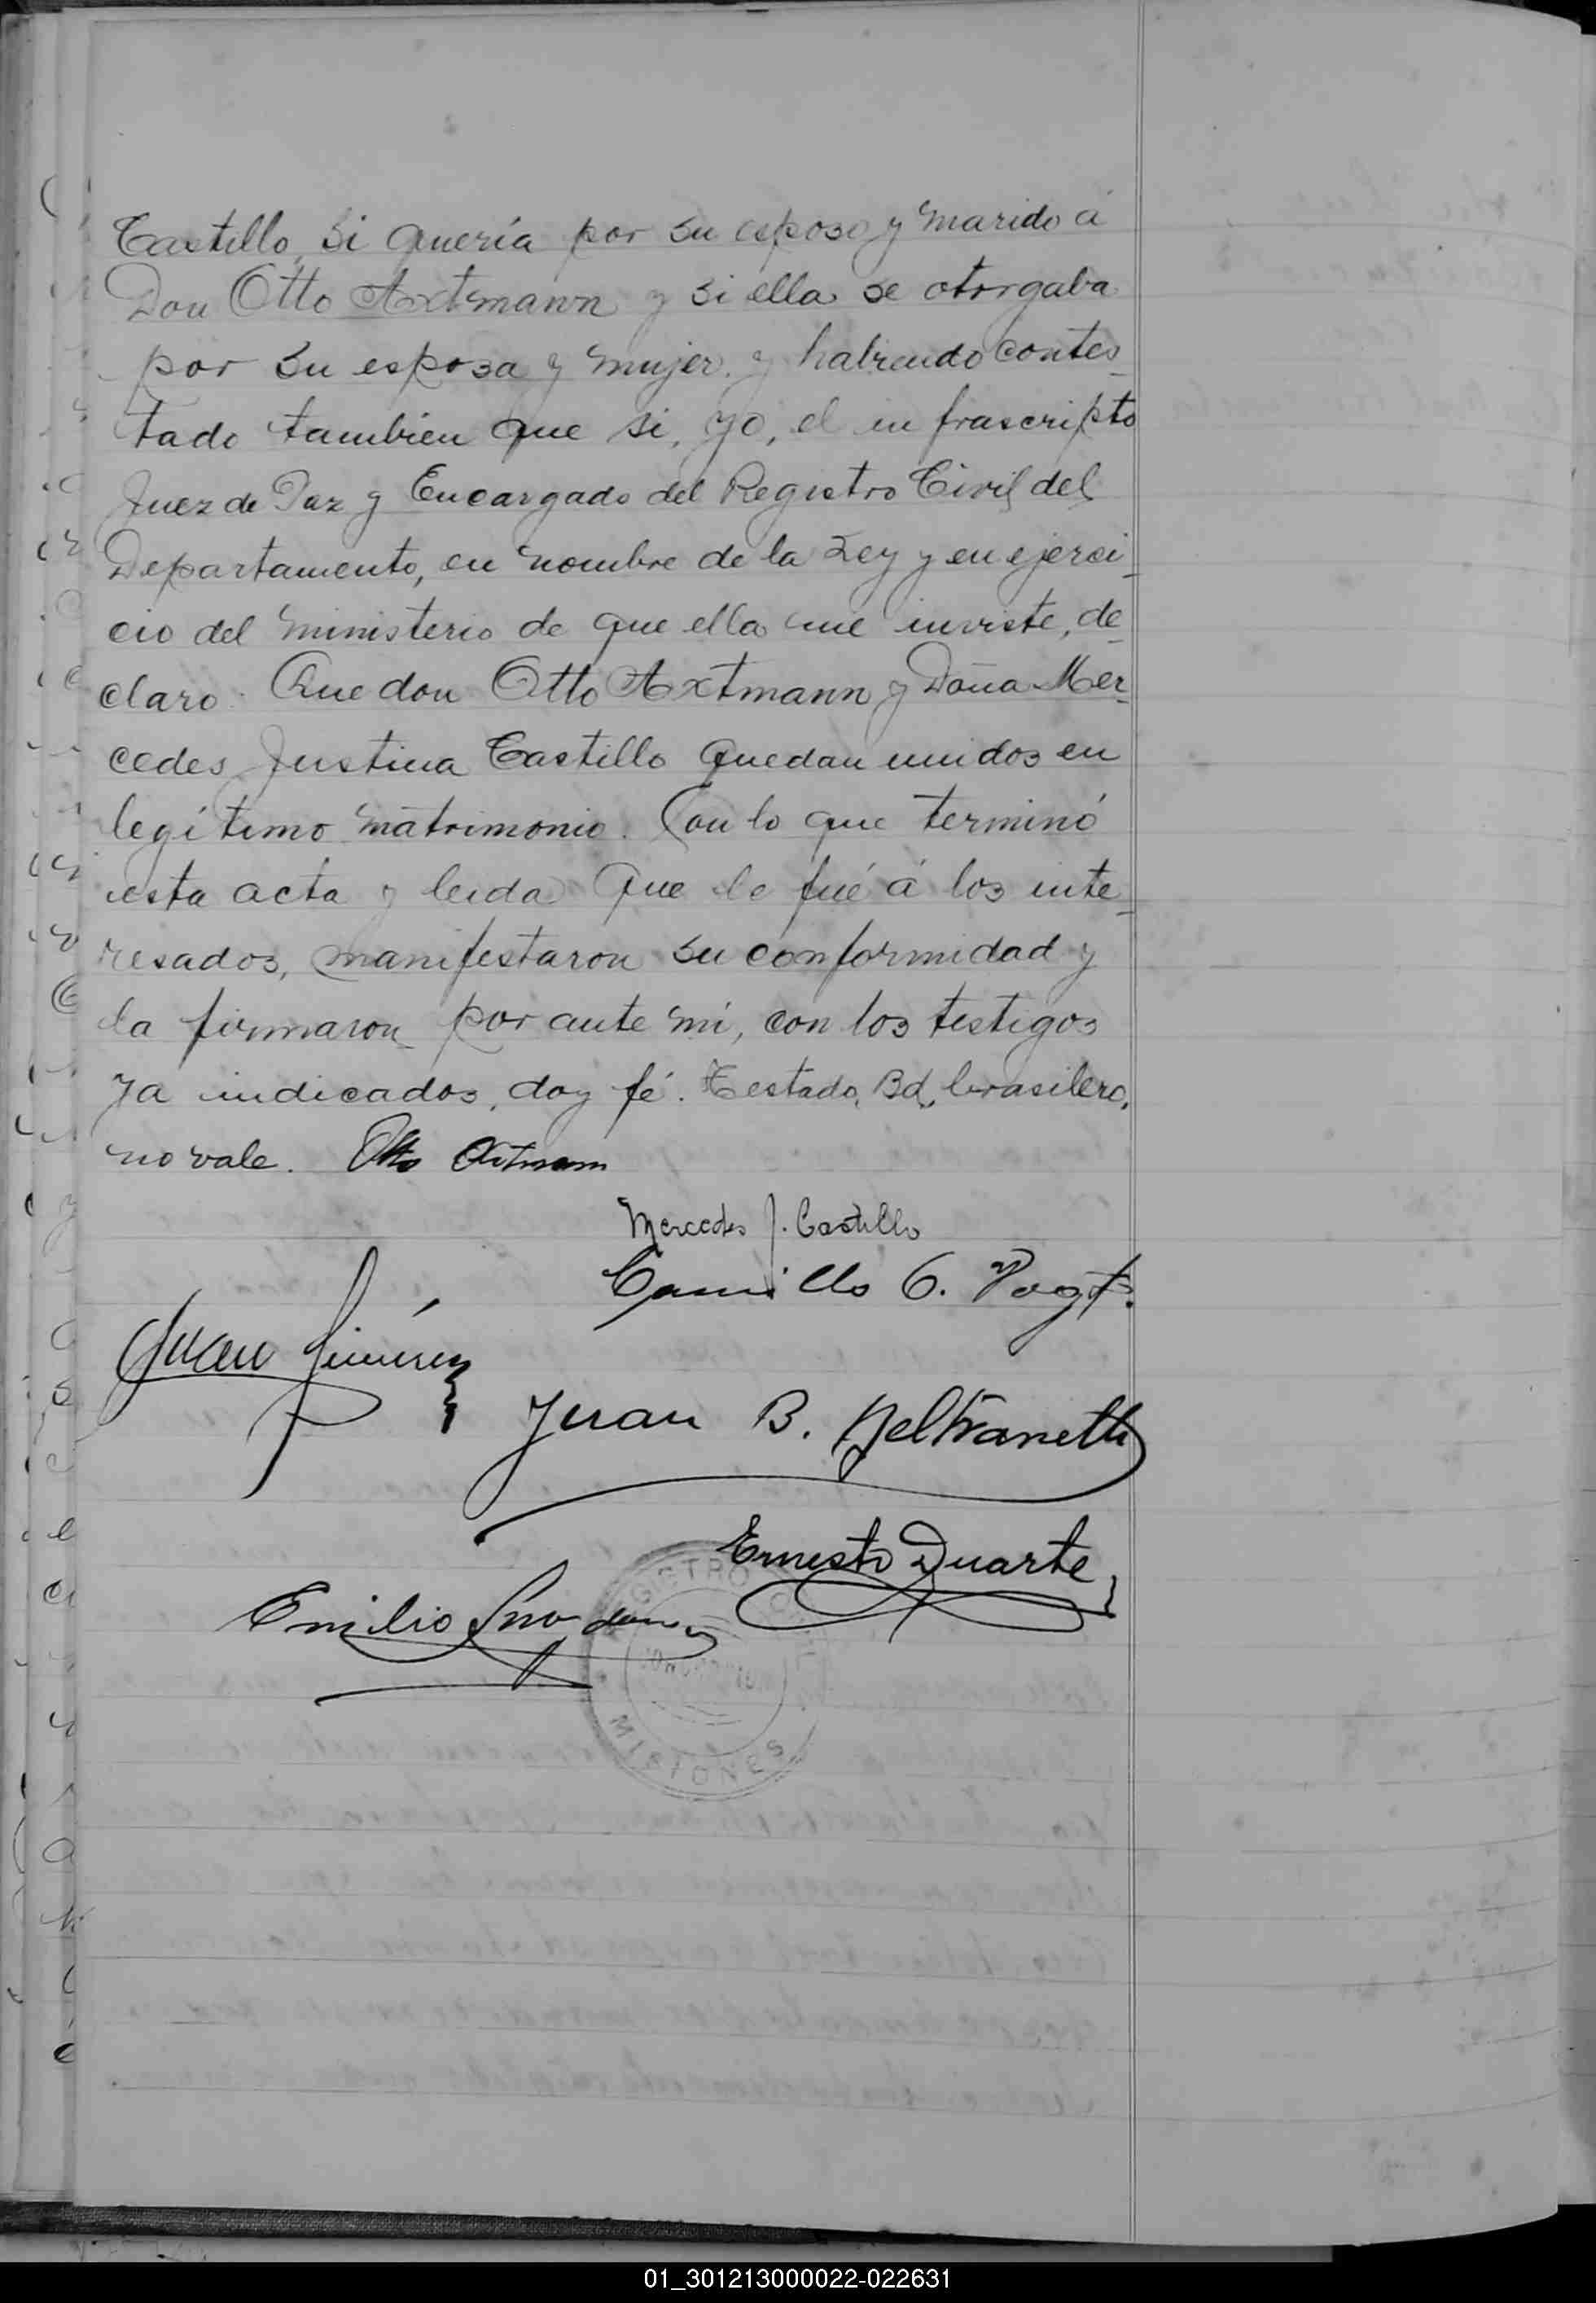 Castillo, si quería por su esposo y marido á
Don Otto Axtmann y si ella se otorgaba
por su esposa y mujer, y habiendo contes_
tado tambien que si, yo, el infrascripto
Juez de Paz y Encargado del Registro Civil del
Departamento, en nombre de la Ley y en ejerci_
cio del ministerio de que ella me inviste, de_
claro: Que don Otto Axtmann y Doña Mer_
cedes Justina Castillo quedan unidos en
legítimo matrimonio. Con lo que terminó
esta acta y leida que le fué á los inte_
resados, manifestaron su conformidad y
la firmaron por ante mí, con los testigos
ya indicados, doy fé. Testado, Bd, brasilero,
no vale. Otto Axtmann
Mercedes J. Castillo
Camillo G. Vogt.
Juan Jiménez
Juan B. Beltrametti
Ernesto Duarte
Emilio
REGISTRO CIVIL
MISIONES
01_301213000022-022631